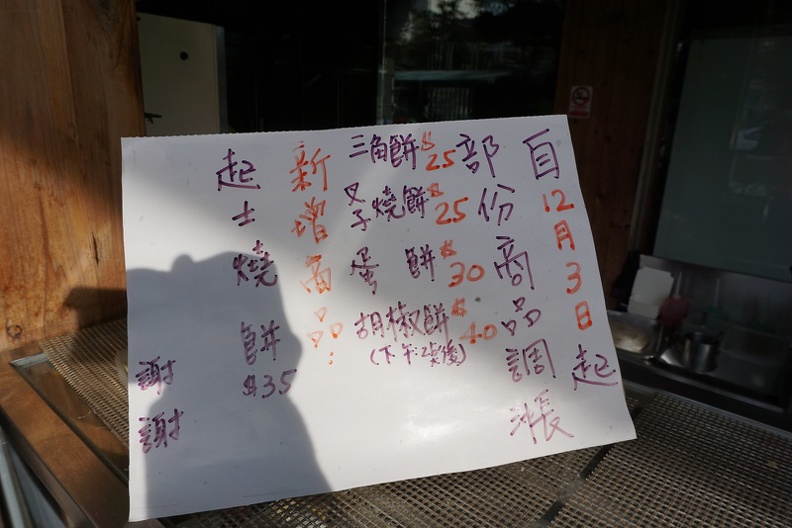 自12月3日起
部份商品調漲
三角餅$25
叉子燒餅$25
蛋餅$30
胡椒餅$40
(下午2點後)
新增商品：
起士燒餅
$35
謝謝